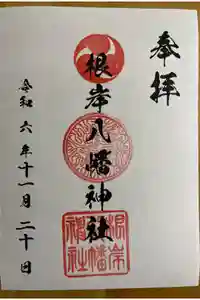 奉拝
根岸八幡神社
令和六年十一月二十日
根岸八幡神社